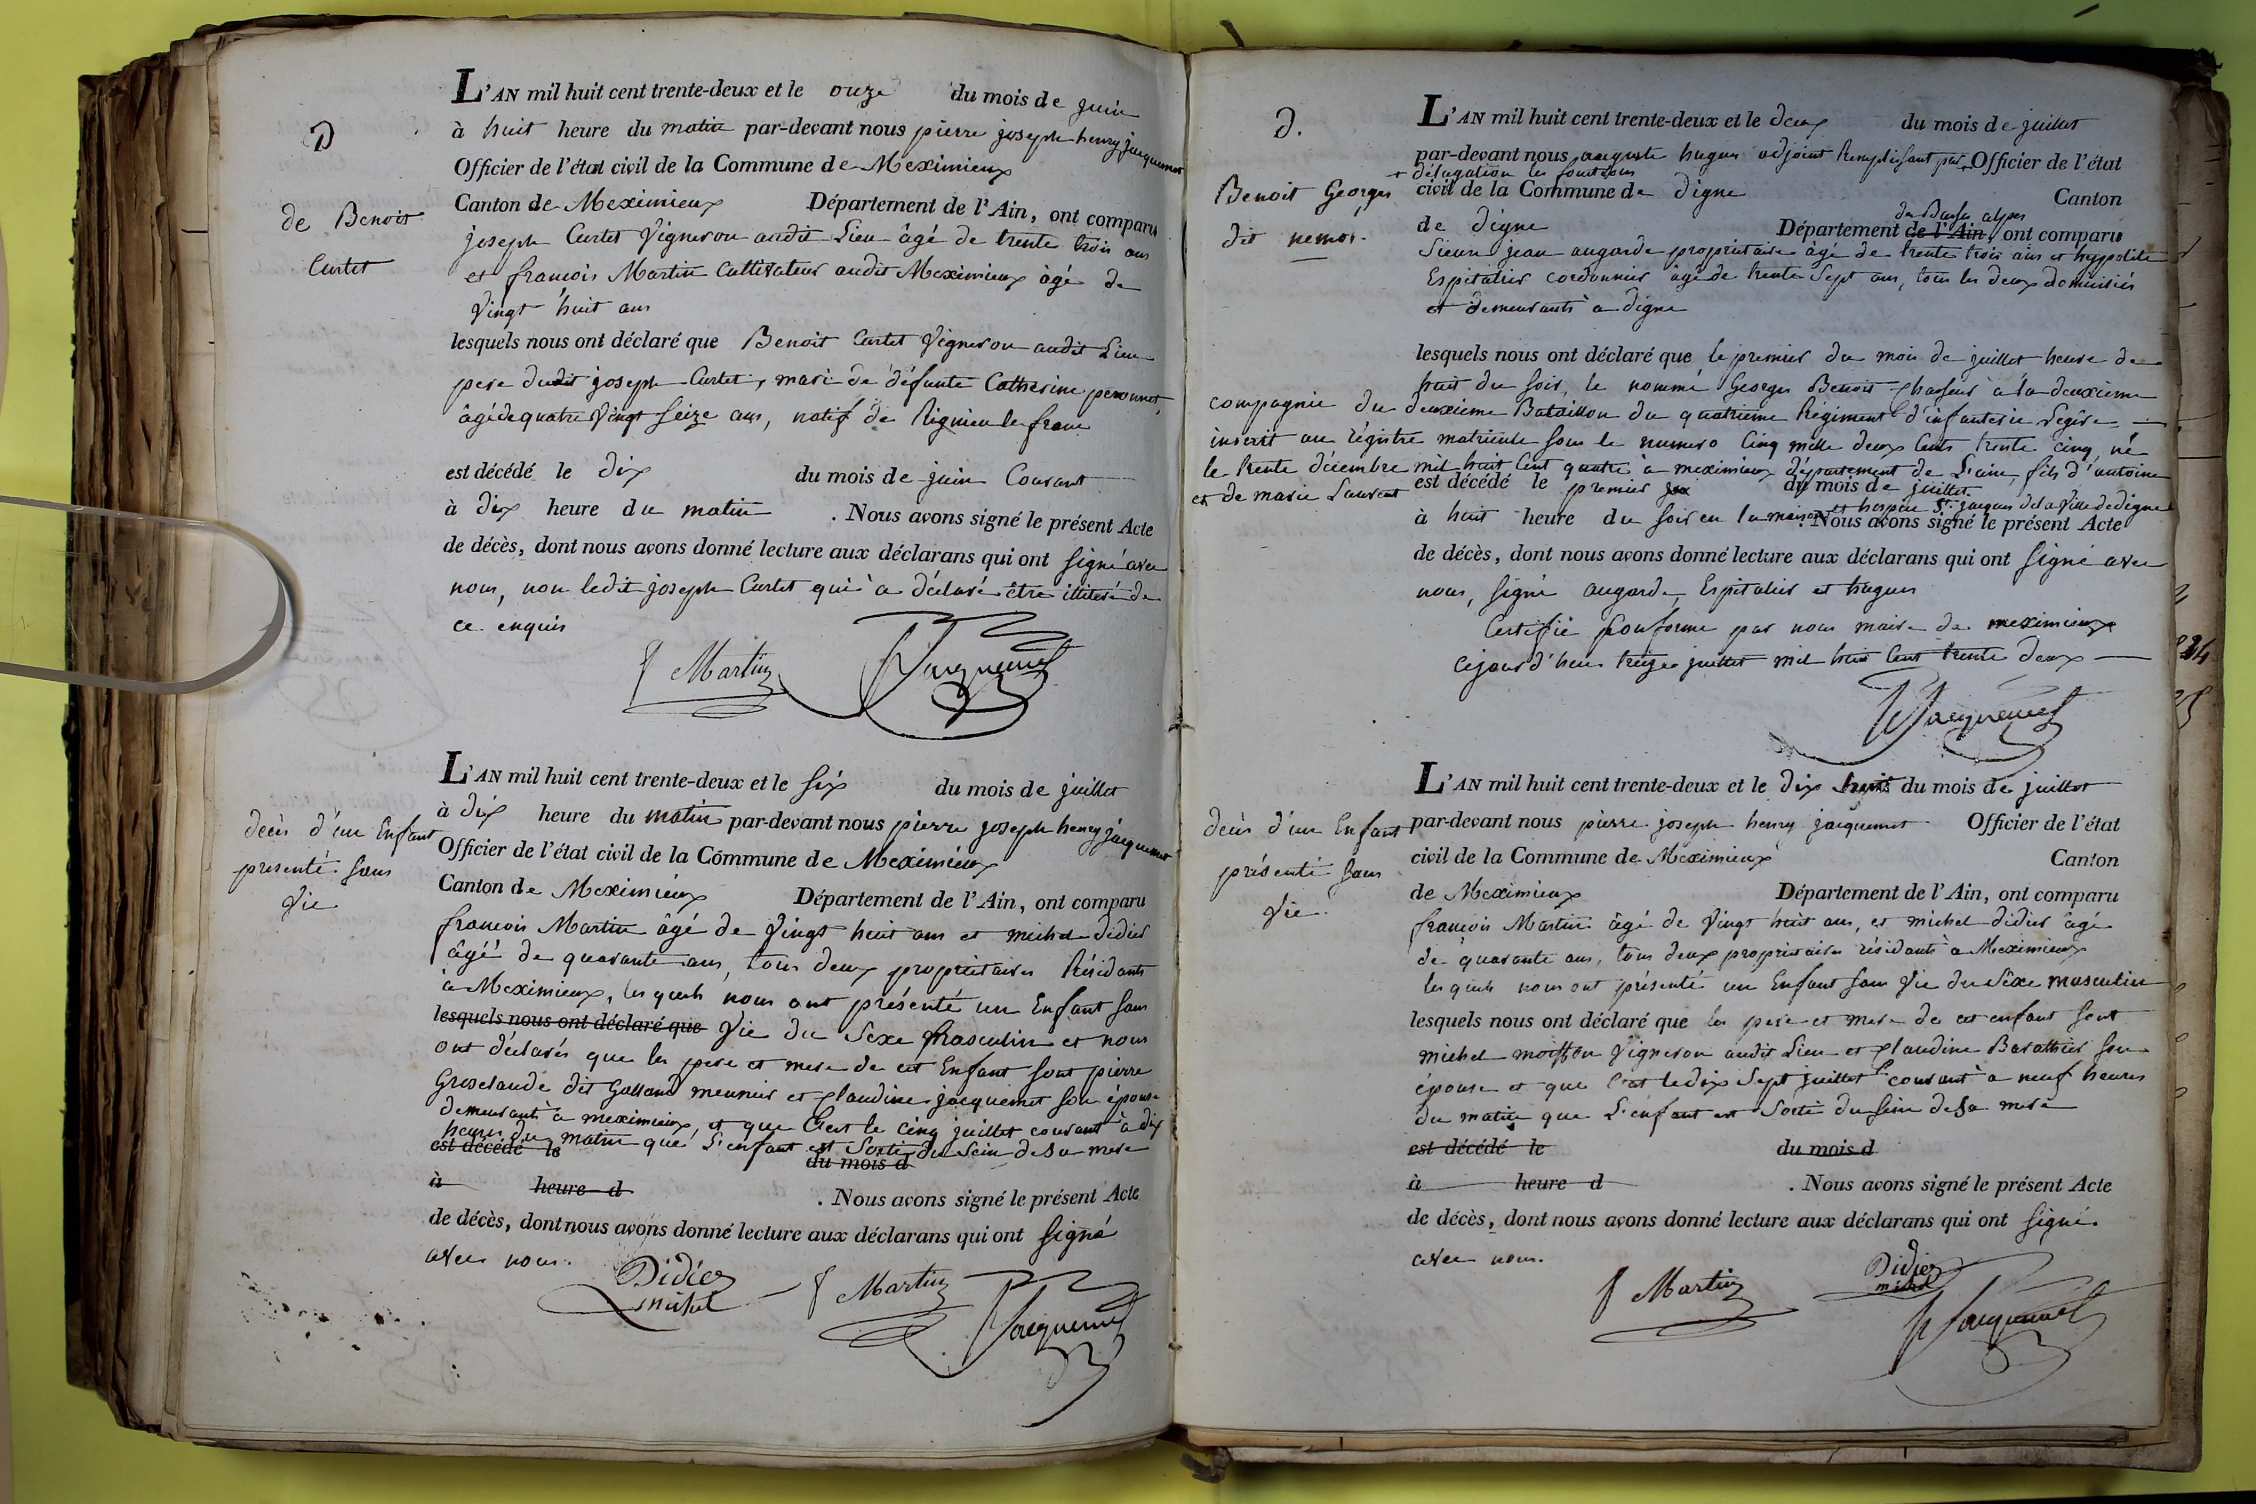 D
de Benoit
Curtet
L'AN mil huit cent trente-deux et le onze du mois de juin
à huit heure du matin par-devant nous pierre joseph henry jacquemet
Officier de l'état civil de la Commune de Meximieux
Canton de Meximieux Département de l'Ain, ont comparu
joseph Curtet Vigneron audit Lieu âgé de trente trois ans
et françois Martin Cultivateur audit Meximieux âgé de
Vingt huit ans
lesquels nous ont déclaré que Benoit Curtet Vigneron audit Lieu
pere dudit joseph Curtet, mari de défunte Catherine peronnet,
âgé de quatre Vingt seize ans, natif de Rignieu le franc
est décédé le dix du mois de juin Courant
à dix heure du matin . Nous avons signé le présent Acte
de décès, dont nous avons donné lecture aux déclarans qui ont signé avec
nous, non ledit joseph Curtet qui a déclaré être illitéré de
ce enquis
f Martin Jacquemet
decès d'un Enfant
presenté sans
Vie
L'AN mil huit cent trente-deux et le six du mois de juillet
à dix heure du matin par-devant nous pierre joseph henry jacquemet
Officier de l'état civil de la Commune de Meximieux
Canton de Meximieux Département de l'Ain, ont comparu
françois Martin âgé de Vingt huit ans et michel didier
âgé de quarante ans, tous deux proprietaires Résidants
à Meximieux, les quels nous ont présenté un Enfant sans
lesquels nous ont déclaré que Vie du Sexe Masculin et nous
ont déclarés que les pere et mere de cet Enfant sont pierre
Groselaude dit Galland meunier et Claudine jacquemet son épouse
demeurants à meximieux, et que C'est le cinq juillet courant à dix
heures du matin que L'enfant est Sorti du Sein de Sa mere
est décédé le du mois d
à heure d . Nous avons signé le présent Acte
de décès, dont nous avons donné lecture aux déclarans qui ont signé
avec nous.
Didier
michel f Martin Jacquemet
D.
Benoit Georges
dit nemos.
L'AN mil huit cent trente-deux et le deux du mois de juillet
par-devant nous auguste hugues adjoint Remplissant par + Officier de l'état
+ délégation les fonctions
civil de la Commune de digne Canton
des Basses alpes
de digne Département de l'Ain, ont comparu
Sieurs jean augarde propriétaire âgé de trente trois ans et hyppolite
Espitalier cordonnier âgé de trente Sept ans, tous les deux domiciliés
et demeurants à digne
lesquels nous ont déclaré que le premier du mois de juillet heure de
huit du soir, le nommé Georges Benoit Chasseur à la deuxieme
compagnie du deuxieme Bataillon du quatrieme Régiment d'infanterie Légère
inscrit au régistre matricule sous le numero Cinq mille deux Cents trente cinq, né
le trente décembre mil huit Cent quatre à meximieux département de L'ain, fils d'antoine
et de marie Laurent
est décédé le premier du mois de juillet
à huit heure du soir en la maison et hospice St. jacques de la Ville de digne . Nous avons signé le présent Acte
de décès, dont nous avons donné lecture aux déclarans qui ont signé avec
nous, signé augarde, Espitalier et hugues
Certifié Conforme par nous maire de meximieux
Cejourd'hui treize juillet mil huit Cent trente deux
Jacquemet
decès d'un Enfant
présenté sans
Vie.
L'AN mil huit cent trente-deux et le dix huit du mois de juillet
par-devant nous pierre joseph henry jacquemet Officier de l'état
civil de la Commune de Meximieux Canton
de Meximieux Département de l'Ain, ont comparu
françois Martin âgé de Vingt huit ans, et michel didier âgé
de quarante ans, tous deux proprietaires résidants à Meximieux
les quels nous ont présenté un Enfant sans Vie du Sexe masculin
lesquels nous ont déclaré que les pere et mere de cet enfant sont
michel moisson Vigneron audit Lieu et Claudine Barathier son
épouse et que C'est le dix Sept juillet courant à neuf heures
du matin que L'enfant est Sorti du sein de Sa mere
est décédé le du mois d
à heure d . Nous avons signé le présent Acte
de décès, dont nous avons donné lecture aux déclarans qui ont signé.
avec nous.
f Martin Didier
michel
Jacquemet